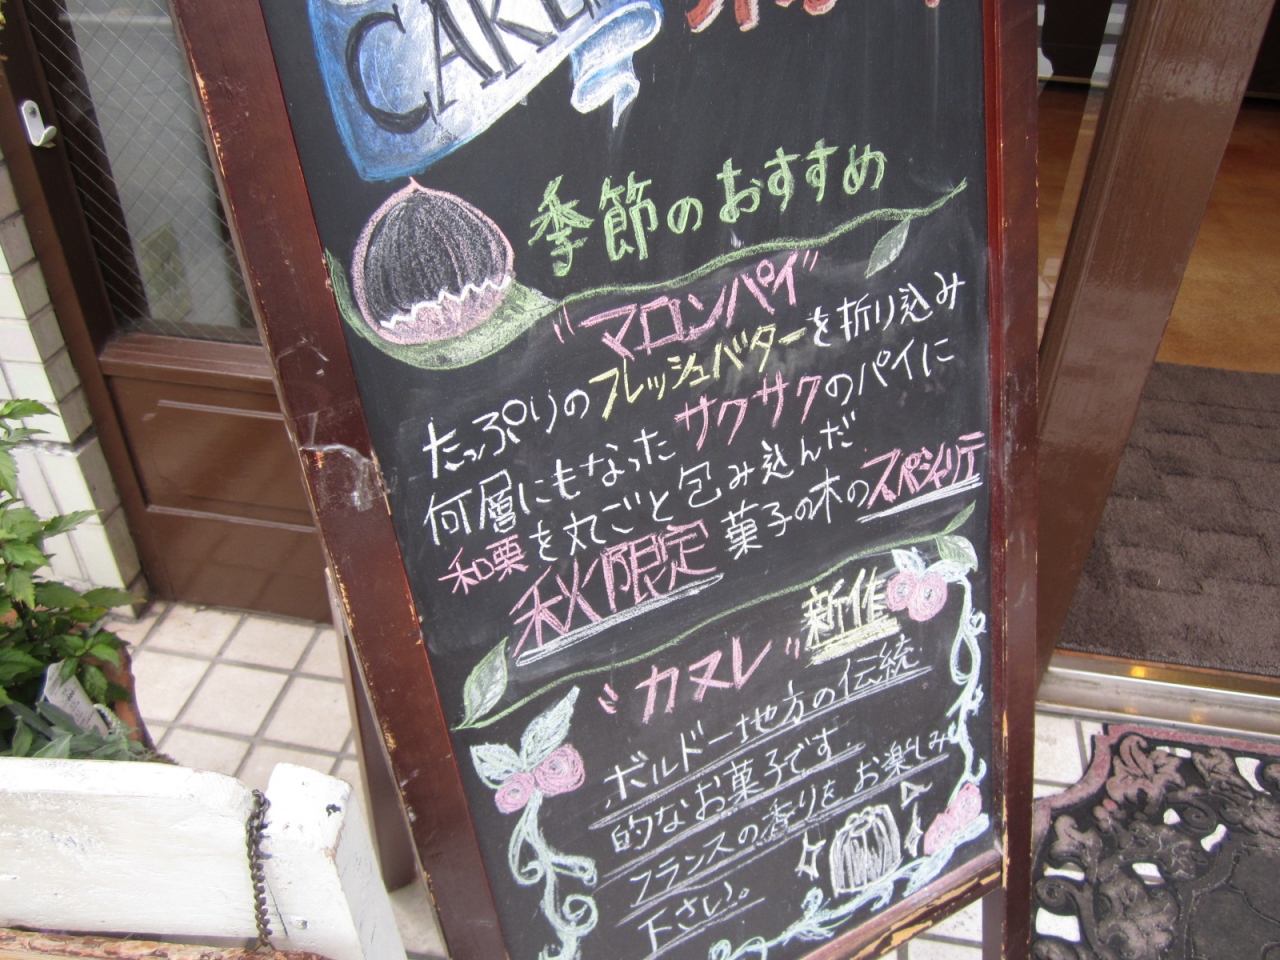 CAKE
季節のおすすめ
"マロンパイ"
たっぷりのフレッシュバターを折り込み
何層にもなったサクサクのパイに
和栗を丸ごと包み込んだ
秋限定 菓子の木のスペシャリテ
"カヌレ" 新作
ボルドー地方の伝統
的なお菓子です。
フランスの香りをお楽しみ
下さい。